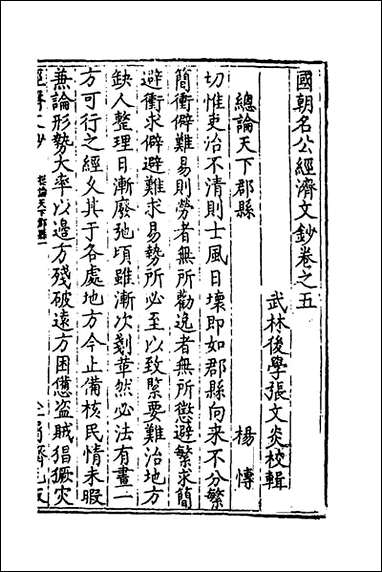 國朝名公經濟文鈔卷之五
武林後學張文炎校輯
總論天下郡縣
楊愽
切惟吏治不清則士風日壞即如郡縣向来不分繁
簡衝僻難易則勞者無所勸逸者無所懲避繁求簡
避衝求僻避難求易勢所必至以致緊要難治地方
缺人整理日漸廢弛頃雖漸次剗革然必法有畫一
方可行之經久其于各處地方今止備核民情未暇
兼論形勢大率以邊方殘破遠方困憊盗賊猖獗灾
總論天下郡縣一